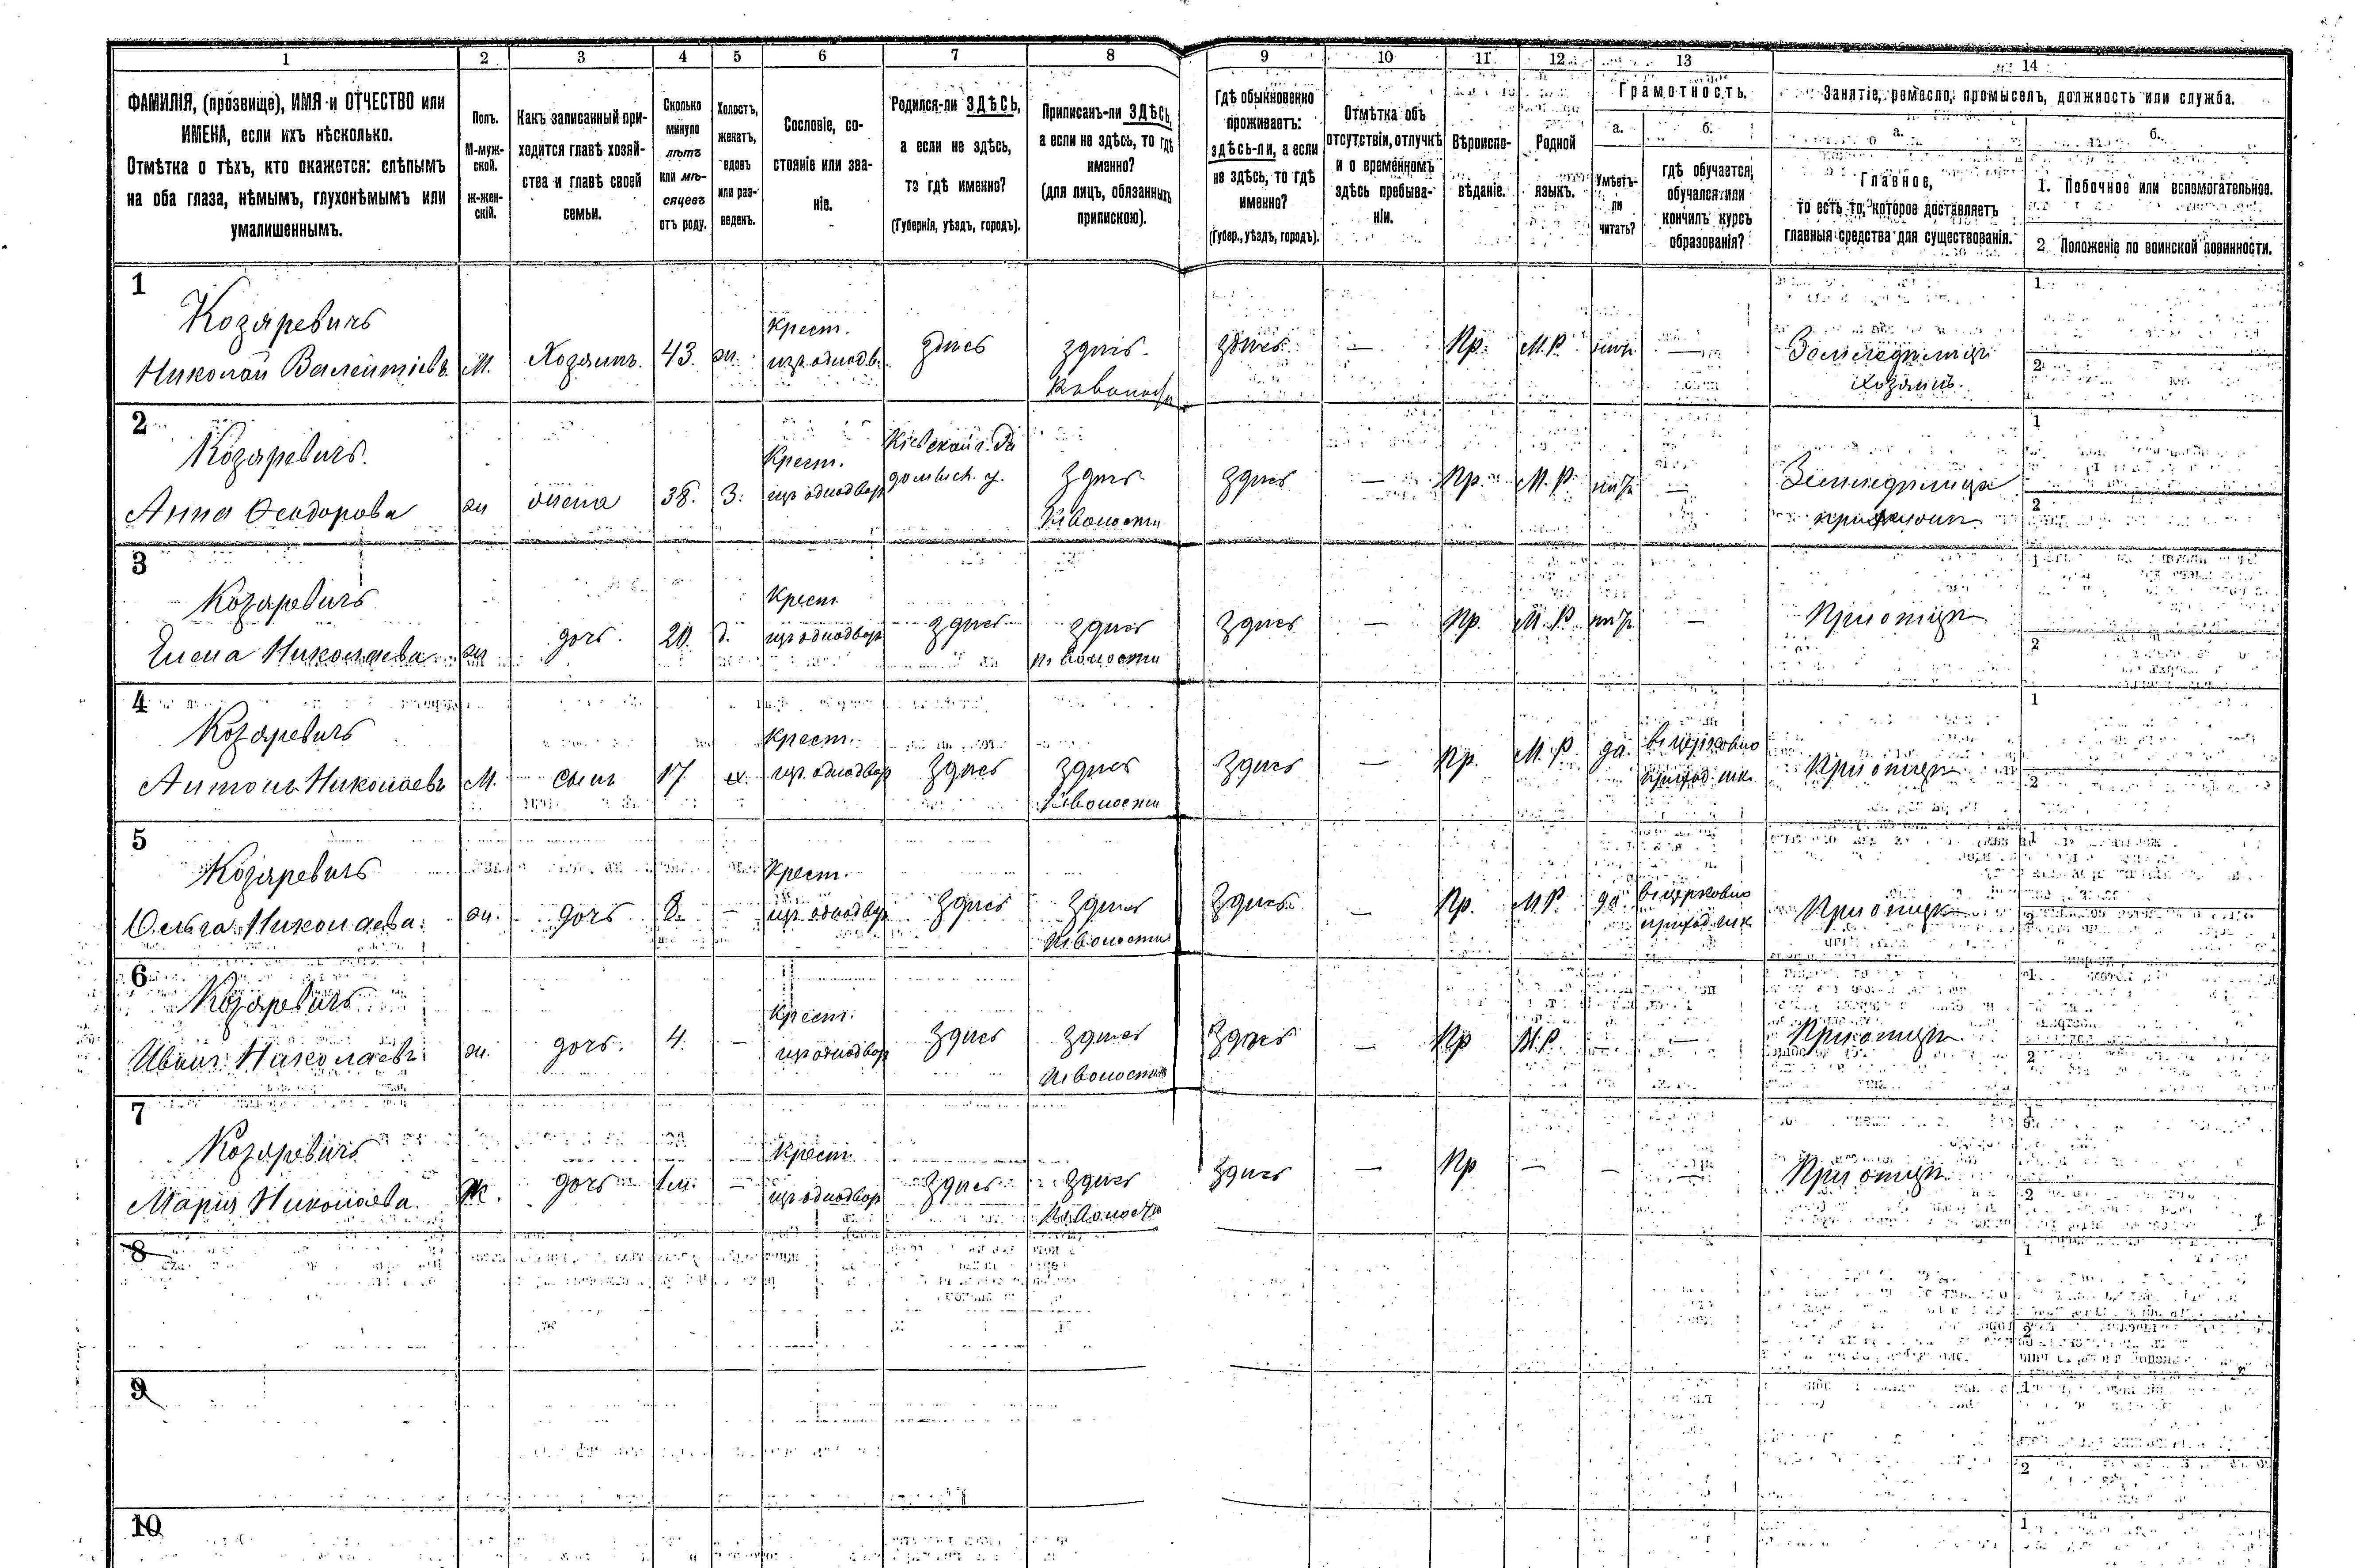 1 2 3 4 5 6 7 8 9 10 11 12 13 14
ФАМИЛІЯ, (прозвище), ИМЯ и ОТЧЕСТВО или
ИМЕНА, если ихъ нѣсколько.
Отмѣтка о тѣхъ, кто окажется: слѣпымъ
на оба глаза, нѣмымъ, глухонѣмымъ или
умалишеннымъ.
Полъ.
М-муж-
ской.
ж-жен-
скій.
Какъ записанный при-
ходится главѣ хозяй-
ства и главѣ своей
семьи.
Сколько
минуло
лѣтъ
или мѣ-
сяцевъ
отъ роду.
Холостъ,
женатъ,
вдовъ
или раз-
веденъ.
Сословіе, со-
стояніе или зва-
ніе.
Родился-ли ЗДѢСЬ,
а если не здѣсь,
то гдѣ именно?
(Губернія, уѣздъ, городъ).
Приписанъ-ли ЗДѢСЬ,
а если не здѣсь, то гдѣ
именно?
(для лицъ, обязанныхъ
припискою).
Гдѣ обыкновенно
проживаетъ:
здѣсь-ли, а если
не здѣсь, то гдѣ
именно?
(Губер., уѣздъ, городъ).
Отмѣтка объ
отсутствіи, отлучкѣ
и о временномъ
здѣсь пребыва-
ніи.
Вѣроиспо-
вѣданіе.
Родной
языкъ.
Грамотность.
а.
Умѣетъ-
ли
читать?
б.
гдѣ обучается,
обучался или
кончилъ курсъ
образованія?
Занятіе, ремесло, промыселъ, должность или служба.
а.
Главное,
то есть то, которое доставляетъ
главныя средства для существованія.
б.
1. Побочное или вспомогательное.
2. Положеніе по воинской повинности.
1
Козаревичъ
Николай Валентіевъ М. Хозяинъ. 43. ж.
Крест.
изъ однодв.
здѣсь
здѣсь
здѣсь — Пр. М.Р. нѣтъ —
Земледѣлецъ
хозяинъ.
1
2
2
Козаревичъ.
Анна Феодорова ж жена 38. З.
Крест.
изъ однодвор
Кіевской г. Ра
домысл. у.
здѣсь
К. волости
здѣсь — Пр. М.Р. нѣтъ —
1
2
3
Козаревичъ
Елена Николаева ж дочь. 20. д.
Крест
изъ однодвор
здѣсь
здѣсь
К. волости
здѣсь — Пр. М.Р. нѣтъ —
При отцѣ
1
2
4
Козаревичъ
Антонъ Николаевъ М. сынъ 17 х.
Крест.
изъ однодвор
здѣсь
здѣсь
К. волости
здѣсь — Пр. М.Р. да.
въ церковно
приход. шк.
При отцѣ
1
2
5
Козаревичъ
Ольга Николаева. ж. дочь 8. —
Крест.
изъ однодвор
здѣсь
здѣсь
К. волости
здѣсь — Пр. М.Р. да
въ церковно
приход. шк.
При отцѣ
1
2
6
Козаревичъ
Иванъ Николаевъ ж. дочь. 4. —
Крест.
изъ однодвор
здѣсь
здѣсь
К. волости
здѣсь — Пр М.Р. — —
При отцѣ
1
2
7
Козаревичъ
Марія Николаева. Ж. дочь 1 м. —
Крест.
изъ однодвор
здѣсь
здѣсь
К. волости
здѣсь — Пр — — —
При отцѣ
1
2
8
1
2
9
1
2
10
1